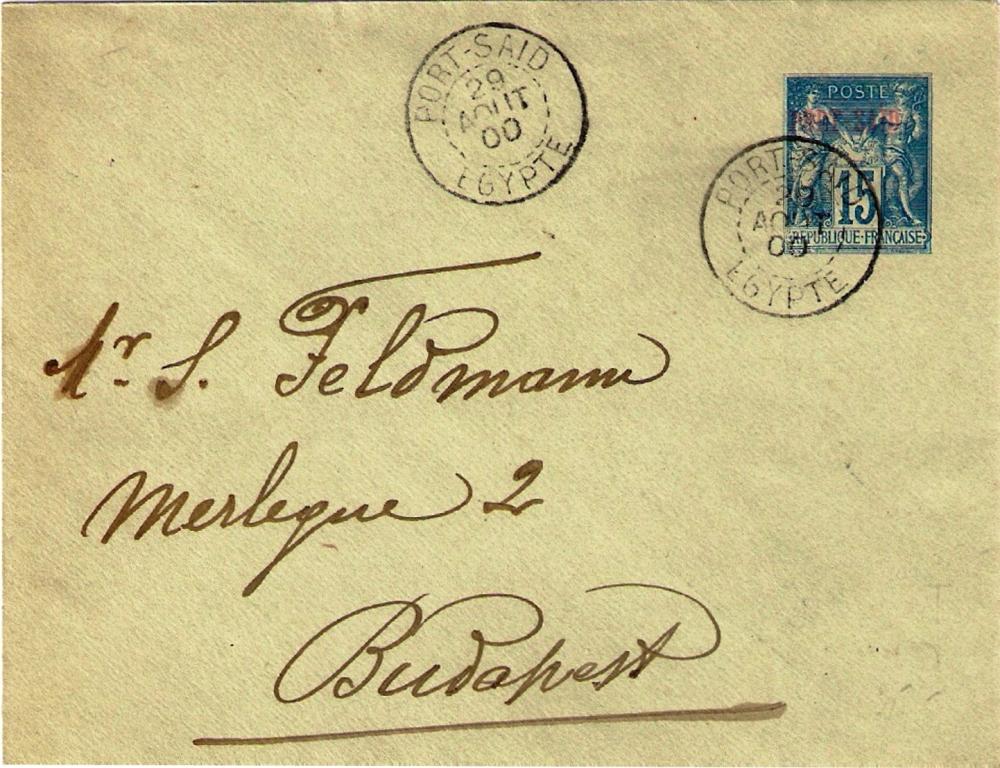 PORT-SAID
29
AOUT
00
EGYPTE
POSTE
PORT-SAID
15
REPUBLIQUE·FRANÇAISE
PORT-SAID
29
AOUT
00
EGYPTE
Mr. S. Feldmann
Merlegue 2
Budapest